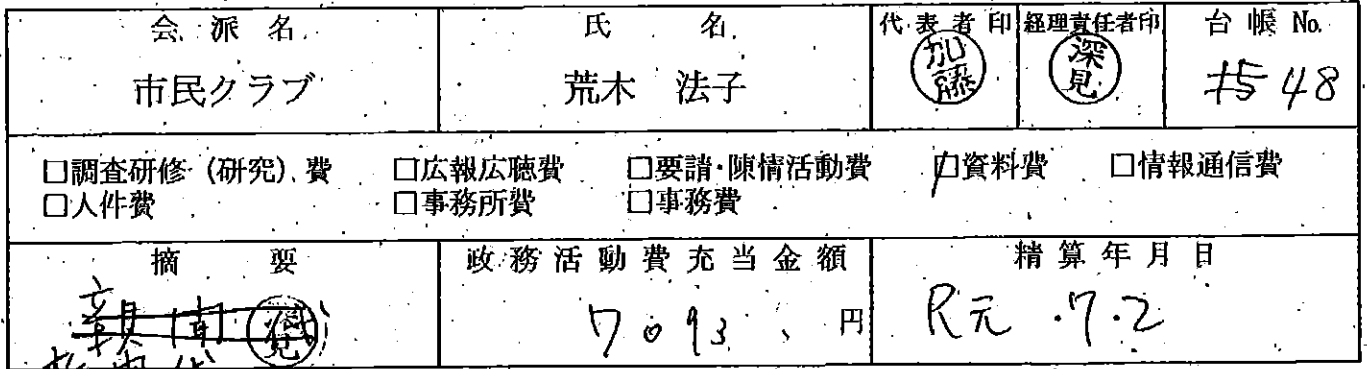 会派名 氏名 代表者印 経理責任者印 台帳 No.
市民クラブ 荒木 法子 加藤 深見 #5 48
□調査研修(研究)費 □広報広聴費 □要請・陳情活動費 □資料費 □情報通信費
□人件費 □事務所費 □事務費
摘要 政務活動費充当金額 精算年月日
深見 7093 円 R元.7.2